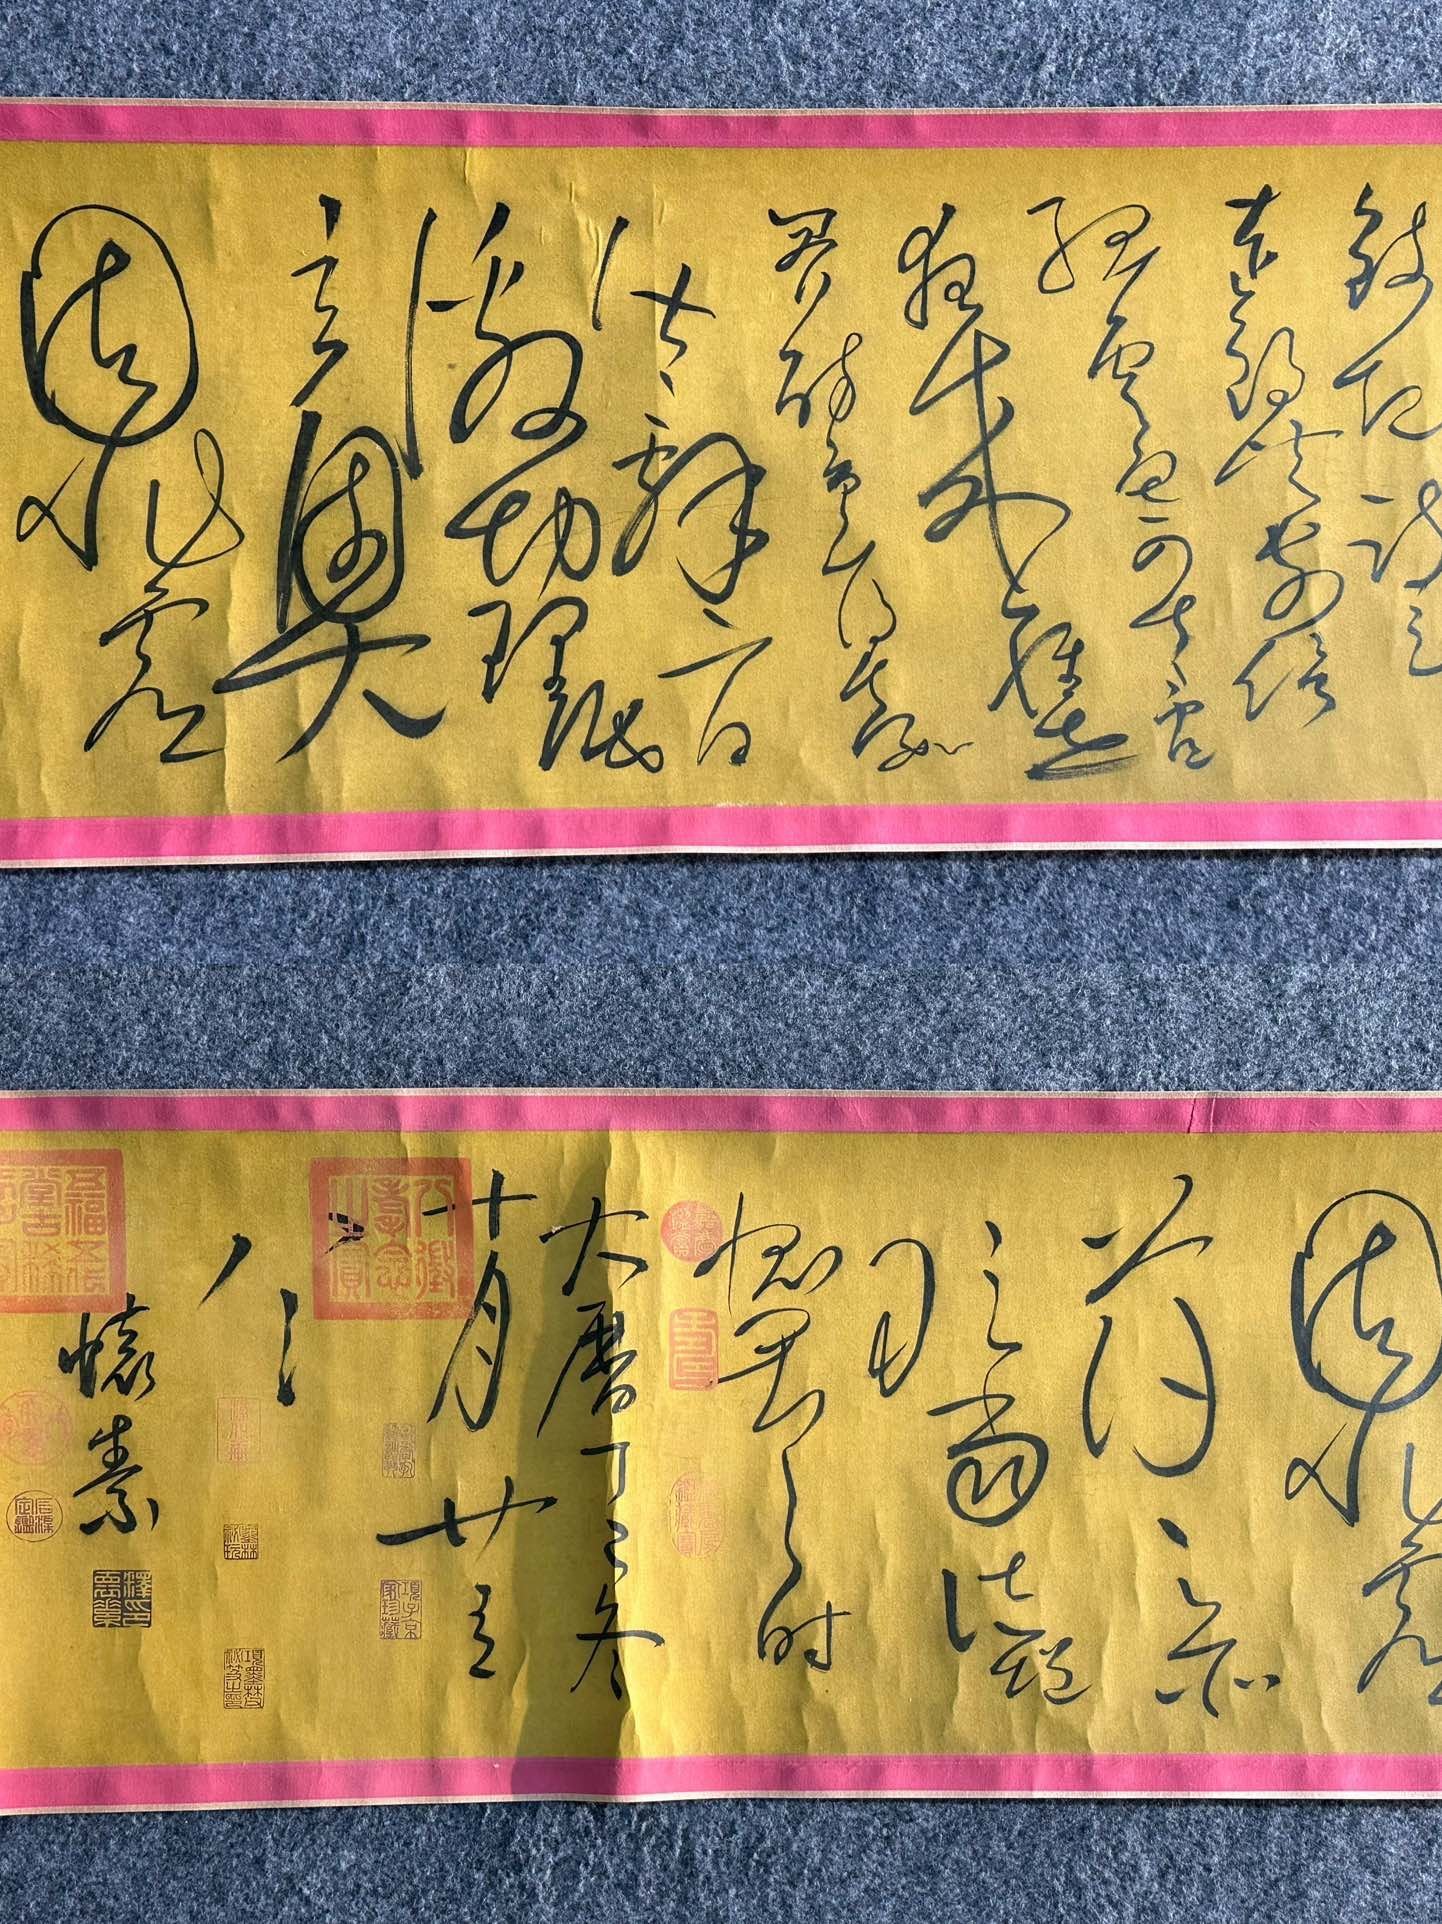 錢起詩云
遠錫無前侶
孤雲寄太虛
狂來輕世
界醉裏得真如
皆辭旨
激切理識
玄奧
固非虛
固非虛
蕩之所
敢當徒增
愧畏耳時
大曆丁巳冬
十月廿有
八日
懷素
八徵耄念之寶
項子京家珍藏